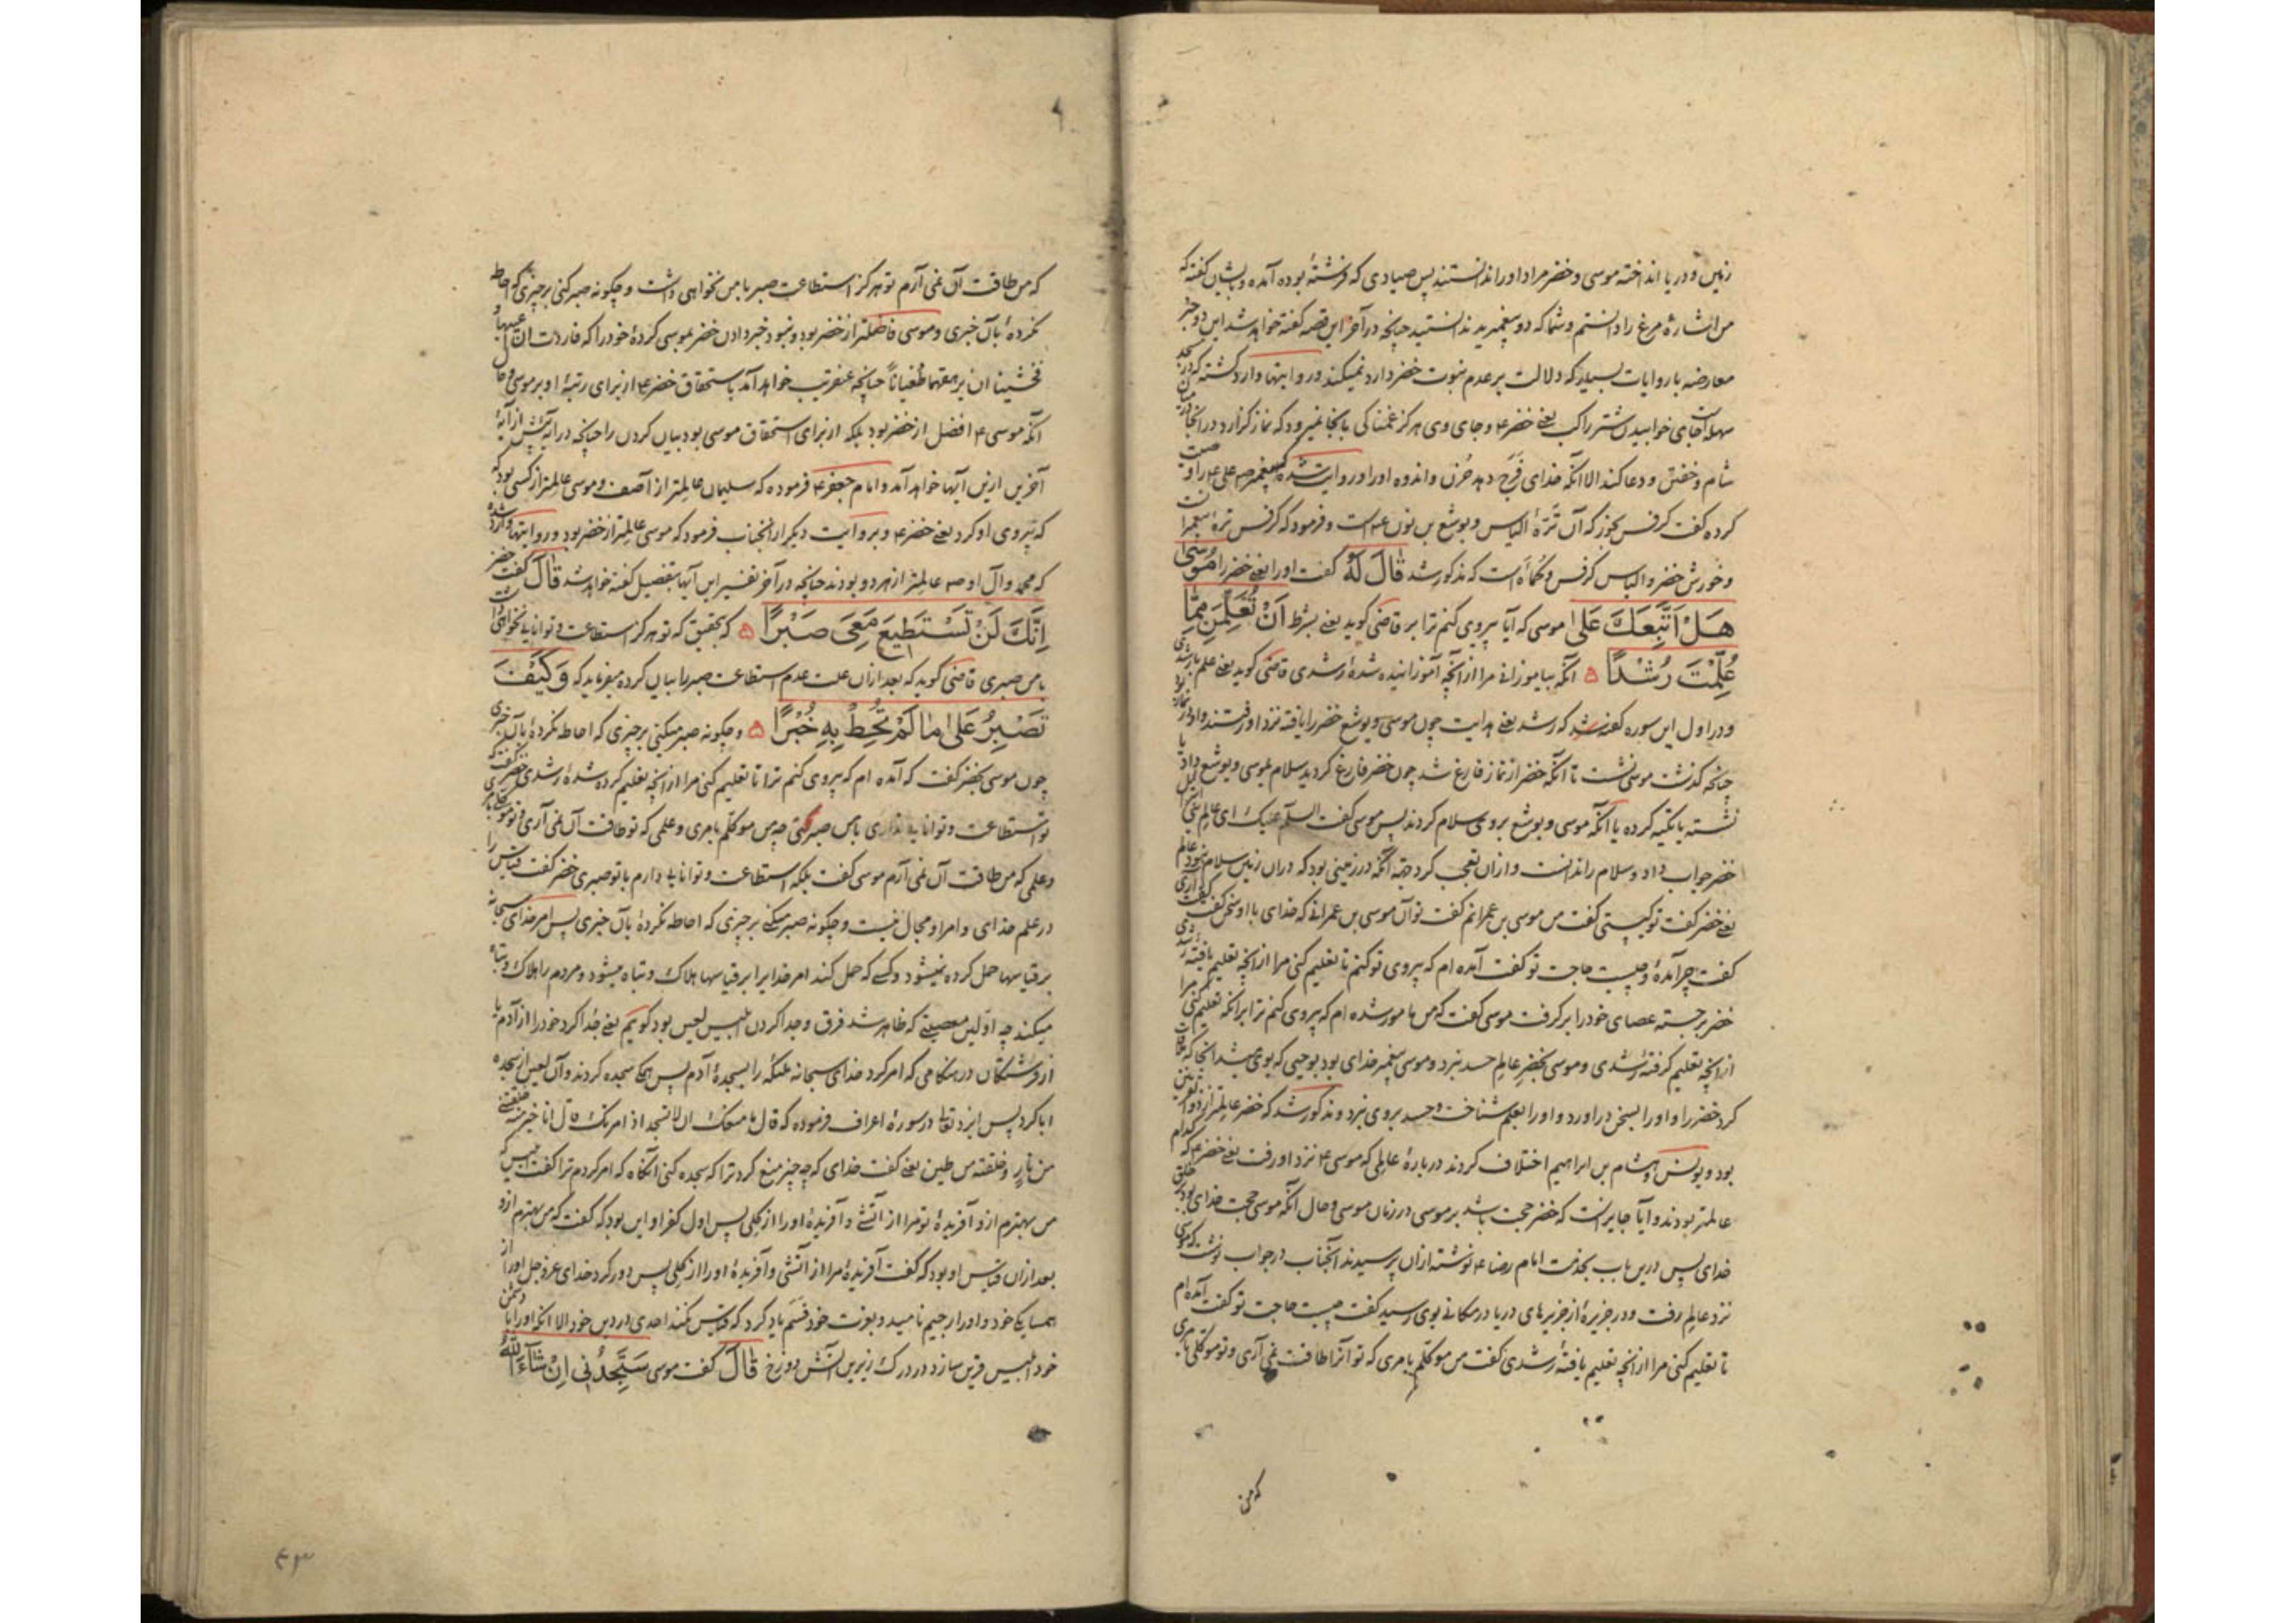 زمین و دریا انداخته موسی و خضر مراد او را ندانستند پس صیادی که فرشتهٔ بوده آمده و بایشان گفته که
من اشارهٔ مرغ را دانستم و شما که دو پیغمبرید ندانستید چنانچه در آخر این قصه گفته خواهد شد این دو خبر
معارضه با روایات بسیار که دلالت بر عدم نبوت خضر دارد نمیکند و روایتها وارد گشته که در مسجد
سهله است جای خوابیدن شتر راکب یعنی خضر ع و جای وی هرگز غمناکی بانجا نمیرود که نماز گزارد در انجا میان
شام و خفتن و دعا کند الا انکه خدای فرج دهد حزن و اندوه او را و روایت شده که پیغمبر ص علی ع را وصیت
کرده گفت کرفس بخور که آن ترهٔ الیاس و یوشع بن نون ع است و فرمود که کرفس ترهٔ پیغمبرانست
و خورش خضر و الیاس کرفس و کماة است که مذکور شد قَالَ لَهُ گفت او را یعنی خضر را مُوسَى
هَلْ اَتَّبِعُكَ عَلَى موسی که آیا پیروی کنم ترا بر قاضی گوید یعنی بشرط اَنْ تُعَلِّمَنِ مِمَّا
عُلِّمْتَ رُشْدًا ۵ انکه بیاموزانی مرا از آنچه آموزانیده شدهٔ رشدی قاضی گوید یعنی علم با رشدی
و در اول این سوره گفته شد که رشد یعنی هدایت چون موسی و یوشع خضر را یافته نزد او رفتند و او در نماز بود
چنانکه گذشت موسی نشست تا انکه خضر از نماز فارغ شد چون خضر فارغ گردید سلام بموسی و یوشع داد یا
نشسته یا تکیه کرده یا انکه موسی و یوشع بر وی سلام کردند پس موسی گفت السلام علیک ای عالم بنی اسرائیل
خضر جواب داد و سلام را ندانست و ازان تعجب کرد چه آنکه در زمینی بود که دران زمین سلام نبود عالم
یعنی خضر گفت تو کیستی گفت من موسی بن عمرانم گفت تو آن موسی بن عمرانی که خدای با او سخن گفت گفت آری
گفت چرا آمدهٔ و چیست حاجت تو گفت آمده ام که پیروی تو کنم تا تعلیم کنی مرا از انچه تعلیم یافتهٔ رشدی
خضر برجسته عصای خود را برگرفت موسی گفت که من مامور شده ام که پیروی کنم ترا بر انکه تعلیم کنی مرا
از انچه تعلیم گرفتهٔ رشدی و موسی بخضر عالم حسد نبرد و موسی پیغمبر خدای بود بوحیی که بوی میشد انجا که ملاقات
کرد خضر را و او را بسخن در اورد و او را بعلم شناخت و حسد بر وی نبرد و مذکور شد که خضر عالمتر از ذو القرنین
بود و یونس و هشام بن ابراهیم اختلاف کردند در بارهٔ عالمی که موسی ع نزد او رفت یعنی خضر ع که کدام
عالمتر بودند و آیا جایز است که خضر حجت باشد بر موسی در زمان موسی و حال آنکه موسی حجت خدای بود بر خلق
خدای پس درین باب بخدمت امام رضا ع نوشته ازان پرسیدند آنجناب در جواب نوشت که موسی
نزد عالم رفت و در جزیرهٔ از جزیرهای دریا در مکانی بوی رسید گفت چیست حاجت تو گفت آمده ام
تا تعلیم کنی مرا از انچه تعلیم یافتهٔ رشدی گفت من موکلم بامری که تو آنرا طاقت نمی آری و تو موکلی بامری
که من
که من طاقت آن نمی آرم تو هرگز استطاعت صبر با من نخواهی داشت و چگونه صبر کنی بر چیزی که احاطه
نکردهٔ بآن خبری و موسی فاضلتر از خضر بود و نبود خبر دادن خضر بموسی کردهٔ خود را که فاردت ان اعیبها و
فخشینا ان یرهقهما طغیاناً چنانچه عنقریب خواهد آمد باستحقاق خضر ع از برای رتبهٔ او بر موسی و حال
آنکه موسی ع افضل از خضر بود بلکه از برای استحقاق موسی بود بیان کردن را چنانچه در آیهٔ پیش از آیهٔ
آخرین ازین آیها خواهد آمد و امام جعفر ع فرموده که سلیمان عالمتر از آصف و موسی عالمتر از کسی بود که
که پیروی او کرد یعنی خضر ع و بروایت دیگر از انجناب فرمود که موسی عالمتر از خضر بود و روایتها وارد شده
که محمد و آل او ص عالمتر از هر دو بودند چنانچه در آخر تفسیر این آیها بتفصیل گفته خواهد شد قَالَ گفت خضر
اِنَّكَ لَنْ تَسْتَطِيعَ مَعِىَ صَبْرًا ۵ که بتحقیق که تو هرگز استطاعت و توانایی نخواهی داشت
با من صبری قاضی گوید که بعد ازان علت عدم استطاعت صبر را بیان کرده میفرماید که وَكَيْفَ
تَصْبِرُ عَلَى مَا لَمْ تُحِطْ بِهِ خُبْرًا ۵ و چگونه صبر میکنی بر چیزی که احاطه نکردهٔ بآن خبری
چون موسی بخضر گفت که آمده ام که پیروی کنم ترا تا تعلیم کنی مرا از انچه تعلیم کرده شدهٔ رشدی خضر گفت که
تو استطاعت و توانایی نداری با من صبر کنی چه من موکلم بامری و علمی که تو طاقت آن نمی آری و تو موکلی بامری
و علمی که من طاقت آن نمی آرم موسی گفت بلکه استطاعت و توانایی دارم با تو صبری خضر گفت قیاس را
در علم خدای و امر او مجال نیست و چگونه صبر میکنی بر چیزی که احاطه نکردهٔ بآن خبری پس امر خدای سبحانه
بر قیاسها حمل کرده نمیشود و کسی که حمل کند امر خدا یرا بر قیاسها هلاک و تباه میشود و مردم را هلاک و تباه
میکند چه اولین معصیتی که ظاهر شد فرق و جدا کردن ابلیس لعین بود گویم یعنی جدا کرد خود را از آدم یا
از فرشتگان در هنگامی که امر کرد خدای سبحانه ملئکه را بسجدهٔ آدم پس همگی سجده کردند و آن لعین از سجده
ابا کرد پس ایزد تعالی در سورهٔ اعراف فرموده که قال ما منعک ان لا تسجد اذ امرتک قال انا خیر منه خلقتنی
من نار و خلقته من طین یعنی گفت خدای که چه چیز منع کرد ترا که سجده کنی آنگاه که امر کردم ترا گفت ابلیس که
من بهترم ازو آفریدهٔ تو مرا از آتشی و آفریدهٔ او را از گلی پس اول کفر او این بود که گفت که من بهترم ازو
بعد ازان قیاس او بود که گفت آفریدهٔ مرا از آتشی و آفریدهٔ او را از گلی پس دور کرد خدای عز و جل او را از
همسایگی خود و او را رجیم نامید و بعزت خود قسم یاد کرد که قیاس نکند احدی در دین خود الا انکه او را با دشمن
خود ابلیس قرین سازد در درک زیرین آتش دوزخ قَالَ گفت موسی سَتَجِدُنِي اِنْ شَآءَ اللّٰهُ